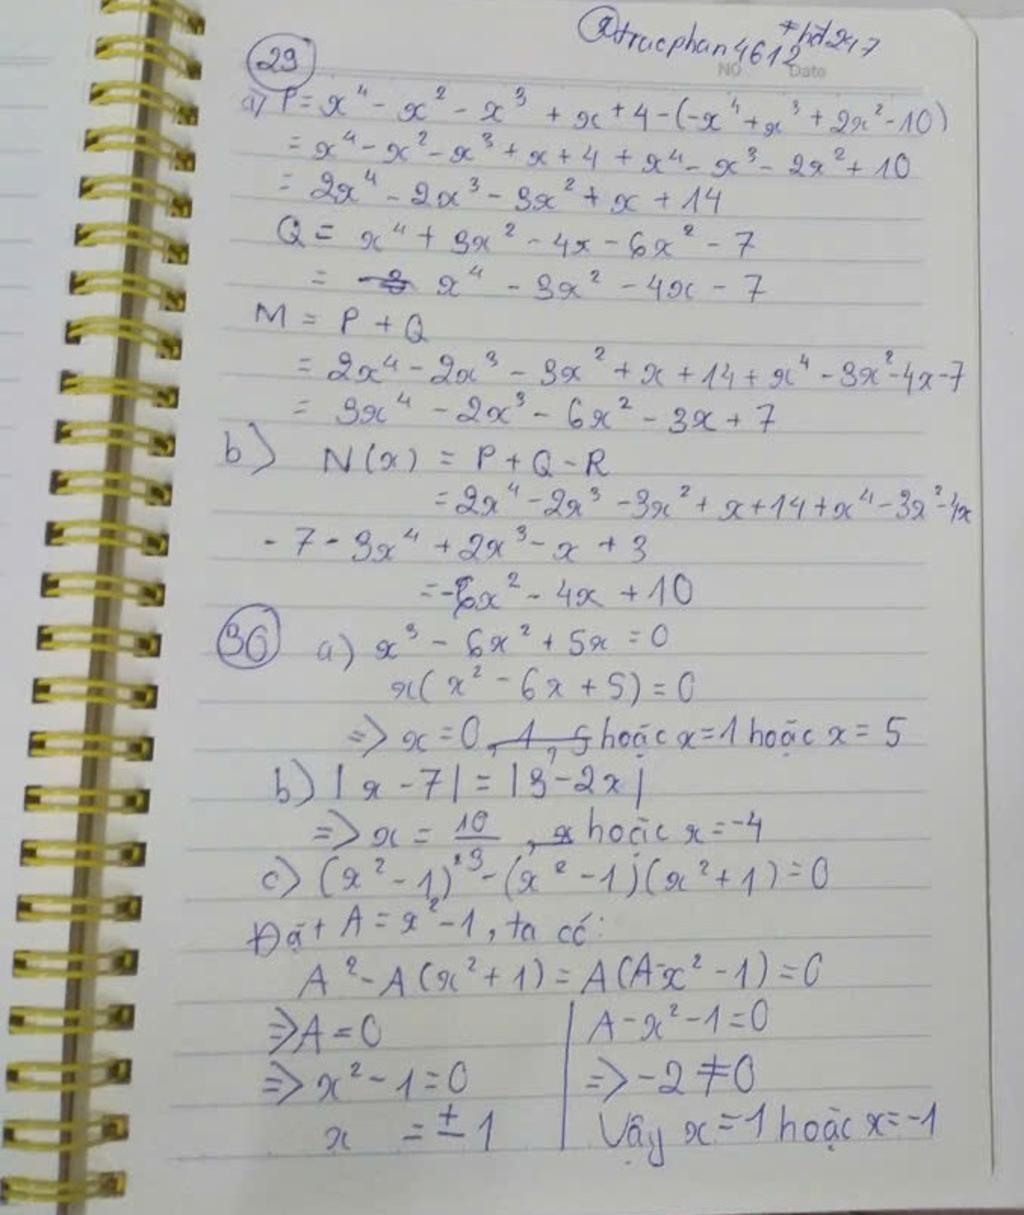 @trucphan4612 #hd247
NO Date
29
a) P = x⁴ - x² - x³ + x + 4 - (-x⁴ + x³ + 2x² - 10)
= x⁴ - x² - x³ + x + 4 + x⁴ - x³ - 2x² + 10
= 2x⁴ - 2x³ - 3x² + x + 14
Q = x⁴ + 3x² - 4x - 6x² - 7
= x⁴ - 3x² - 4x - 7
M = P + Q
= 2x⁴ - 2x³ - 3x² + x + 14 + x⁴ - 3x² - 4x - 7
= 3x⁴ - 2x³ - 6x² - 3x + 7
b) N(x) = P + Q - R
= 2x⁴ - 2x³ - 3x² + x + 14 + x⁴ - 3x² - 4x
- 7 - 3x⁴ + 2x³ - x + 3
= -6x² - 4x + 10
30 a) x³ - 6x² + 5x = 0
x(x² - 6x + 5) = 0
=> x = 0, 1, 5 hoặc x = 1 hoặc x = 5
b) |x - 7| = |3 - 2x|
=> x = 10/3, x hoặc x = -4
c) (x² - 1)² - (x² - 1)(x² + 1) = 0
Đặt A = x² - 1, ta có:
A² - A(x² + 1) = A(A - x² - 1) = 0
=> A = 0 | A - x² - 1 = 0
=> x² - 1 = 0 | => -2 ≠ 0
x = ± 1 | Vậy x = 1 hoặc x = -1